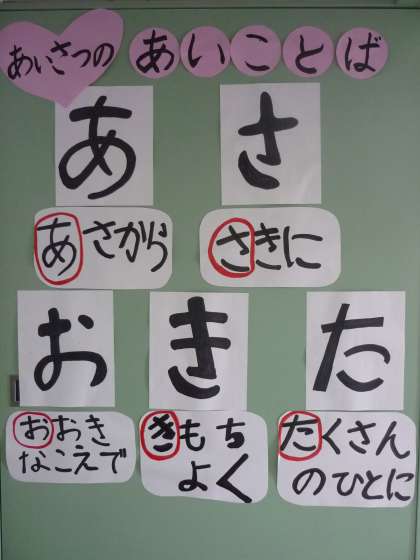 あいさつの あいことば
あ さ
あさから さきに
お き た
おおき
なこえで
きもち
よく
たくさん
のひとに